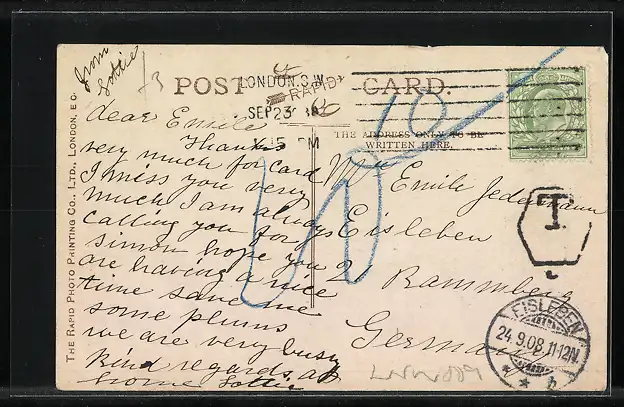 from
Lottie
POST CARD.
RAPID
LONDON. S.W
SEP 23
15 PM
THE ADDRESS ONLY TO BE
WRITTEN HERE.
dear Emile
Thanks
very much for card
I miss you very
much I am always
calling you for
Simon hope you
are having a nice
time save me
some plums
we are very busy
Kind regards
Lottie
Emile Jedermann
Eisleben
2 Rammberg
Germany
T
EISLEBEN
24.9.08.11-12N.
10
THE RAPID PHOTO PRINTING CO., LTD., LONDON, E.C.